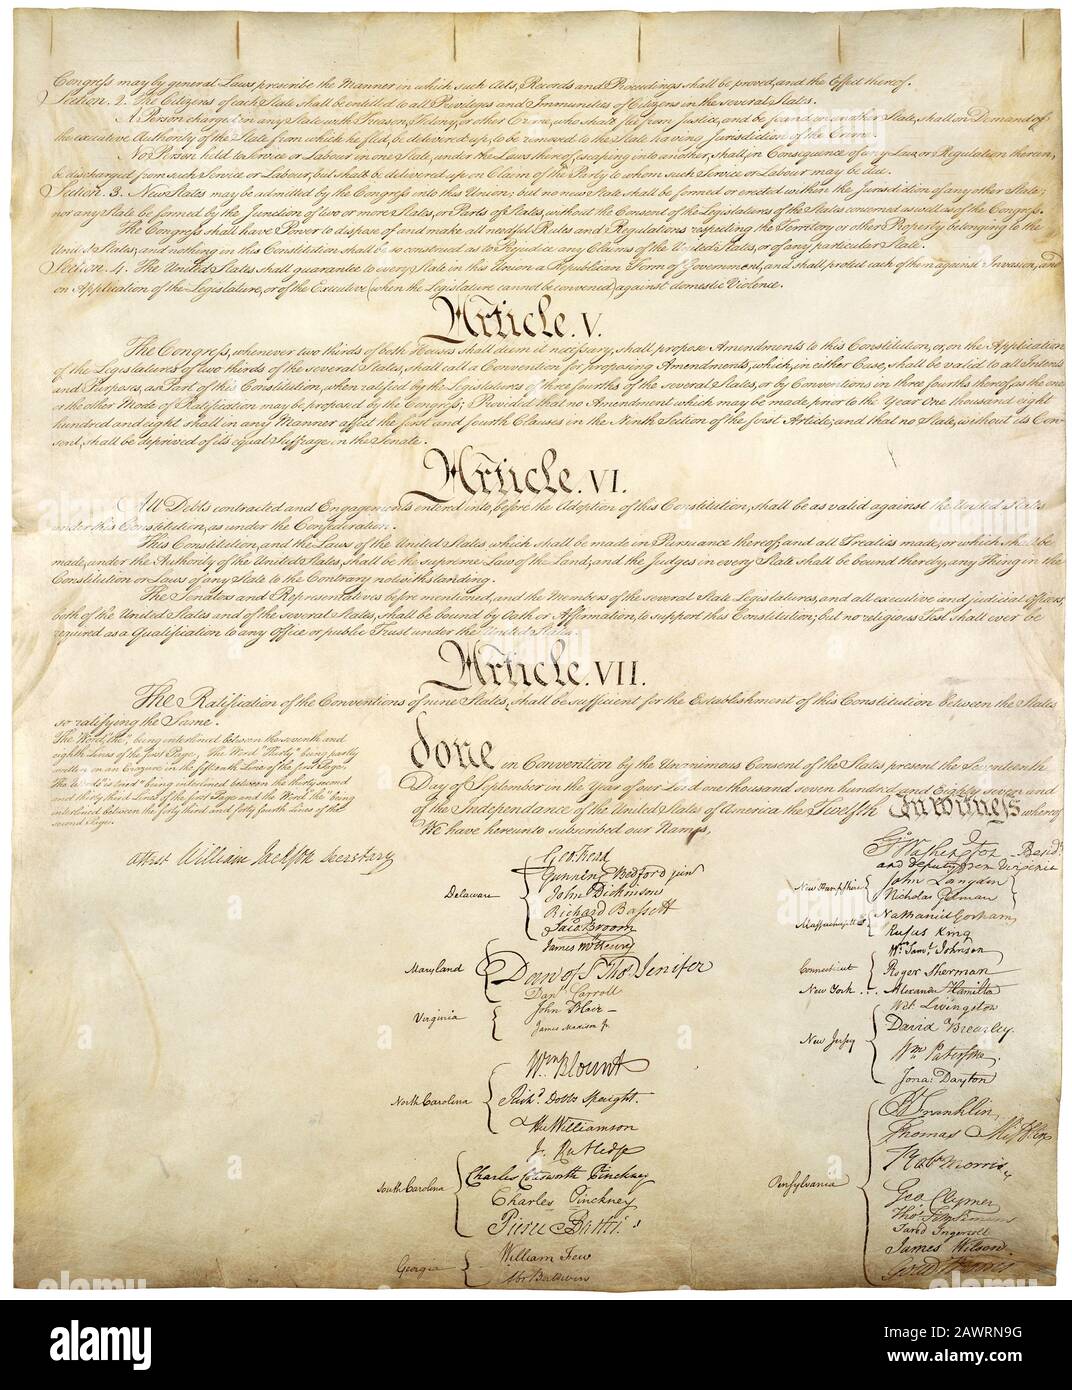 Congress may by general Laws prescribe the Manner in which such Acts, Records and Proceedings shall be proved, and the Effect thereof.
Section. 2. The Citizens of each State shall be entitled to all Privileges and Immunities of Citizens in the several States.
A Person charged in any State with Treason, Felony, or other Crime, who shall flee from Justice, and be found in another State, shall on Demand of
the executive Authority of the State from which he fled, be delivered up, to be removed to the State having Jurisdiction of the Crime.
No Person held to Service or Labour in one State, under the Laws thereof, escaping into another, shall, in Consequence of any Law or Regulation therein,
be discharged from such Service or Labour, but shall be delivered up on Claim of the Party to whom such Service or Labour may be due.
Section. 3. New States may be admitted by the Congress into this Union; but no new State shall be formed or erected within the Jurisdiction of any other State;
nor any State be formed by the Junction of two or more States, or Parts of States, without the Consent of the Legislatures of the States concerned as well as of the Congress.
The Congress shall have Power to dispose of and make all needful Rules and Regulations respecting the Territory or other Property belonging to the
United States; and nothing in this Constitution shall be so construed as to Prejudice any Claims of the United States, or of any particular State.
Section. 4. The United States shall guarantee to every State in this Union a Republican Form of Government, and shall protect each of them against Invasion; and
on Application of the Legislature, or of the Executive (when the Legislature cannot be convened) against domestic Violence.
Article. V.
The Congress, whenever two thirds of both Houses shall deem it necessary, shall propose Amendments to this Constitution, or, on the Application
of the Legislatures of two thirds of the several States, shall call a Convention for proposing Amendments, which, in either Case, shall be valid to all Intents
and Purposes, as Part of this Constitution, when ratified by the Legislatures of three fourths of the several States, or by Conventions in three fourths thereof, as the one
or the other Mode of Ratification may be proposed by the Congress; Provided that no Amendment which may be made prior to the Year One thousand eight
hundred and eight shall in any Manner affect the first and fourth Clauses in the Ninth Section of the first Article; and that no State, without its Con-
sent, shall be deprived of its equal Suffrage in the Senate.
Article. VI.
All Debts contracted and Engagements entered into, before the Adoption of this Constitution, shall be as valid against the United States
under this Constitution, as under the Confederation.
This Constitution, and the Laws of the United States which shall be made in Pursuance thereof; and all Treaties made, or which shall be
made, under the Authority of the United States, shall be the supreme Law of the Land; and the Judges in every State shall be bound thereby, any Thing in the
Constitution or Laws of any State to the Contrary notwithstanding.
The Senators and Representatives before mentioned, and the Members of the several State Legislatures, and all executive and judicial Officers,
both of the United States and of the several States, shall be bound by Oath or Affirmation, to support this Constitution; but no religious Test shall ever be
required as a Qualification to any Office or public Trust under the United States.
Article. VII.
The Ratification of the Conventions of nine States, shall be sufficient for the Establishment of this Constitution between the States
so ratifying the Same.
The Word, "the," being interlined between the seventh and
eighth Lines of the first Page, The Word "Thirty" being partly
written on an Erazure in the fifteenth Line of the first Page,
The Words "is tried" being interlined between the thirty second
and thirty third Lines of the first Page and the Word "the" being
interlined between the forty third and forty fourth Lines of the
second Page.
Attest William Jackson Secretary
done in Convention by the Unanimous Consent of the States present the Seventeenth
Day of September in the Year of our Lord one thousand seven hundred and Eighty seven and
of the Independance of the United States of America the Twelfth In witness whereof
We have hereunto subscribed our Names,
Delaware
Geo: Read
Gunning Bedford jun
John Dickinson
Richard Bassett
Jaco: Broom
Maryland
James McHenry
Dan of St Thos Jenifer
Danl Carroll
Virginia
John Blair—
James Madison Jr.
North Carolina
Wm Blount
Richd. Dobbs Spaight.
Hu Williamson
South Carolina
J. Rutledge
Charles Cotesworth Pinckney
Charles Pinckney
Pierce Butler.
Georgia
William Few
Abr Baldwin
Go Washington Presidt
and deputy from Virginia
New Hampshire
John Langdon
Nicholas Gilman
Massachusetts
Nathaniel Gorham
Rufus King
Connecticut
Wm Saml Johnson
Roger Sherman
New York ...
Alexander Hamilton
New Jersey
Wil: Livingston
David Brearley.
Wm Paterson.
Jona: Dayton
Pensylvania
B Franklin
Thomas Mifflin
Robt Morris
Geo. Clymer
Thos. FitzSimons
Jared Ingersoll
James Wilson.
Gouv Morris
alamy
Image ID: 2AWRN9G
www.alamy.com